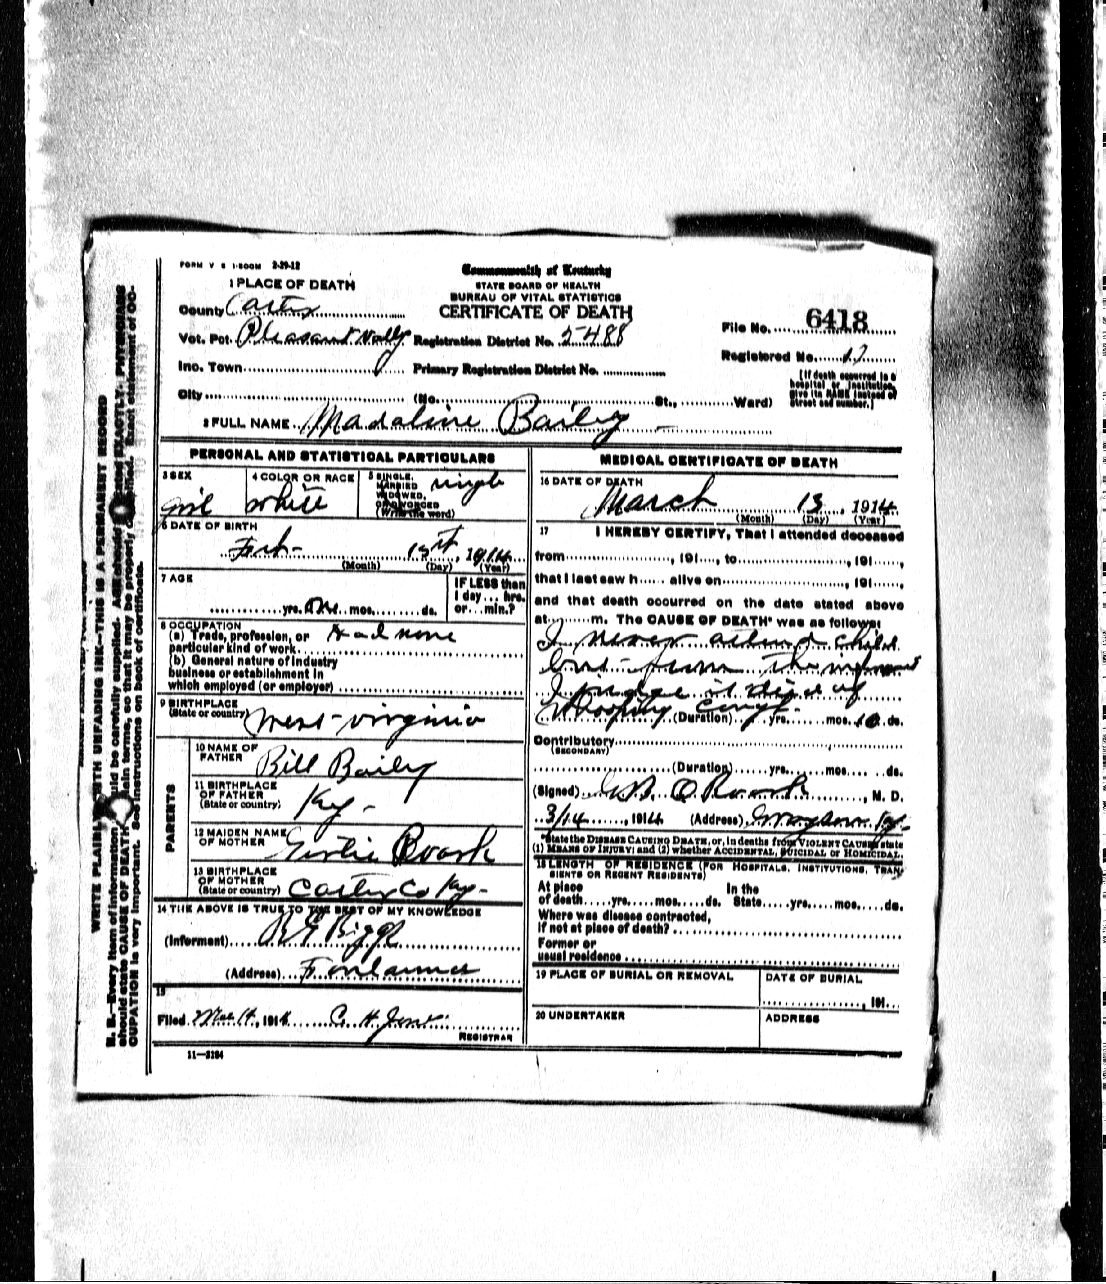 FORM V S 1-500M 2-29-12
Commonwealth of Kentucky
STATE BOARD OF HEALTH
BUREAU OF VITAL STATISTICS
CERTIFICATE OF DEATH
1 PLACE OF DEATH
County Carter
Vot. Pct. Pleasant Vally Registration District No. 5488
Inc. Town Primary Registration District No.
File No. 6418
Registered No. 17
[If death occurred in a hospital or institution, give its NAME instead of street and number.]
City (No. St., Ward)
2 FULL NAME Madaline Baily
PERSONAL AND STATISTICAL PARTICULARS
3 SEX
girl
4 COLOR OR RACE
White
5 SINGLE, MARRIED, WIDOWED, OR DIVORCED (Write the word)
single
6 DATE OF BIRTH
13th, 1914
(Month) (Day) (Year)
7 AGE
yrs. one mos. ds.
IF LESS than 1 day... hrs. or... min.?
8 OCCUPATION
(a) Trade, profession, or particular kind of work Had none
(b) General nature of industry business or establishment in which employed (or employer)
9 BIRTHPLACE
(State or country) West-virginia
PARENTS
10 NAME OF FATHER
Bill Baily
11 BIRTHPLACE OF FATHER
(State or country)
Ky-
12 MAIDEN NAME OF MOTHER
Gertie Roark
13 BIRTHPLACE OF MOTHER
(State or country) Carter Co Ky-
14 THE ABOVE IS TRUE TO THE BEST OF MY KNOWLEDGE
(Informant)
(Address)
15
Filed Mch 14, 1914 C. H. Jones
REGISTRAR
11—3184
MEDICAL CERTIFICATE OF DEATH
16 DATE OF DEATH
March 13, 1914
(Month) (Day) (Year)
17 I HEREBY CERTIFY, That I attended deceased
from , 191 , to , 191 ,
that I last saw h alive on , 191 ,
and that death occurred on the date stated above
at m. The CAUSE OF DEATH* was as follows:
I never attend child
but from the
I judge it died of
Whooping cough
(Duration) yrs. mos. 10 ds.
Contributory
(SECONDARY)
(Duration) yrs. mos. ds.
(Signed) O Roark, M. D.
3/14, 1914 (Address) Grayson Ky-
*State the DISEASE CAUSING DEATH, or, in deaths from VIOLENT CAUSES state
(1) MEANS OF INJURY; and (2) whether ACCIDENTAL, SUICIDAL or HOMICIDAL.
18 LENGTH OF RESIDENCE (FOR HOSPITALS, INSTITUTIONS, TRANSIENTS OR RECENT RESIDENTS)
At place of death yrs. mos. ds. In the State yrs. mos. ds.
Where was disease contracted, if not at place of death?
Former or usual residence
19 PLACE OF BURIAL OR REMOVAL
DATE OF BURIAL
, 191
20 UNDERTAKER
ADDRESS
WRITE PLAINLY WITH UNFADING INK—THIS IS A PERMANENT RECORD